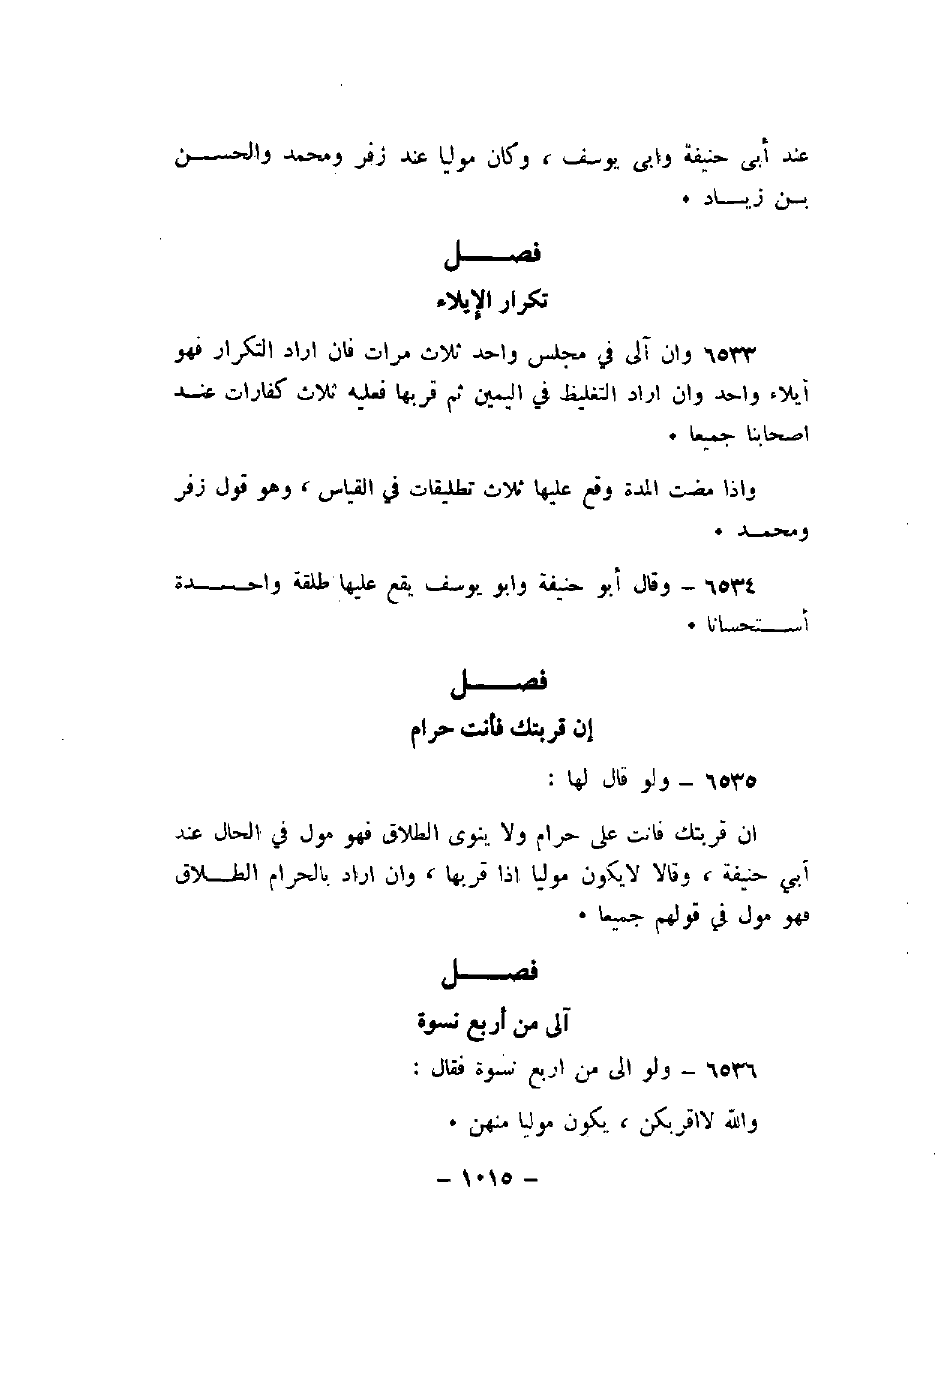 عند أبى حنيفة وابى يوسف ، وكان موليا عند زفر ومحمد والحسن
بن زياد .
فصل
تكرار الإيلاء
٦٥٣٣ وان آلى في مجلس واحد ثلاث مرات فان اراد التكرار فهو
أيلاء واحد وان اراد التغليظ في اليمين ثم قربها فعليه ثلاث كفارات عند
اصحابنا جميعا .
واذا مضت المدة وقع عليها ثلاث تطليقات في القياس ، وهو قول زفر
ومحمد .
٦٥٣٤ – وقال أبو حنيفة وابو يوسف يقع عليها طلقة واحدة
أستحسانا .
فصل
إن قربتك فأنت حرام
٦٥٣٥ – ولو قال لها :
ان قربتك فانت على حرام ولا ينوى الطلاق فهو مول في الحال عند
أبي حنيفة ، وقالا لايكون موليا اذا قربها ، وان اراد بالحرام الطلاق
فهو مول في قولهم جميعا .
فصل
آلى من أربع نسوة
٦٥٣٦ – ولو الى من اربع نسوة فقال :
والله لااقربكن ، يكون موليا منهن .
– ١٠١٥ –